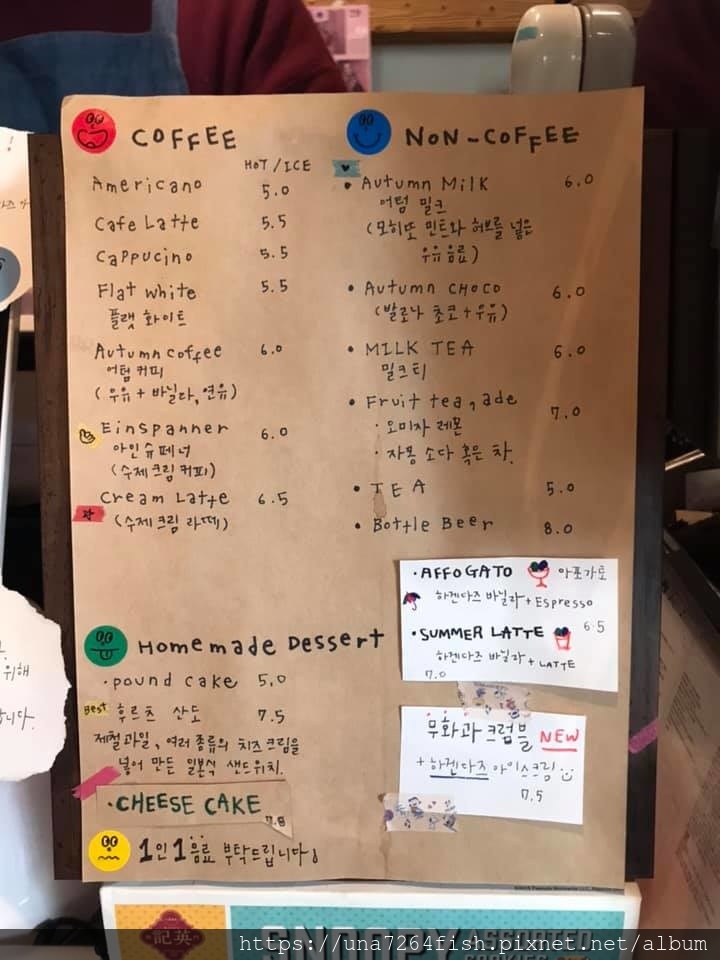 COFFEE
HOT / ICE
Americano 5.0
Cafe Latte 5.5
Cappucino 5.5
Flat white 5.5
플랫 화이트
Autumn coffee 6.0
어텀 커피
(우유 + 바닐라, 연유)
Einspanner 6.0
아인슈페너
(수제 크림 커피)
Cream Latte 6.5
(수제 크림 라떼)
NON-COFFEE
• Autumn Milk 6.0
어텀 밀크
(모히또 민트와 허브를 넣은
우유 음료)
• Autumn CHOCO 6.0
(발로나 초코 + 우유)
• MILK TEA 6.0
밀크티
• Fruit tea, ade 7.0
· 오미자 레몬
· 자몽 소다 혹은 차.
• TEA 5.0
• Bottle Beer 8.0
· AFFOGATO 아포가토
하겐다즈 바닐라 + Espresso
6.5
· SUMMER LATTE
하겐다즈 바닐라 + LATTE
7.0
Homemade Dessert
· pound cake 5.0
Best 후르츠 산도 7.5
제철과일, 여러 종류의 치즈 크림을
넣어 만든 일본식 샌드위치.
· CHEESE CAKE
무화과 크럼블 NEW
+ 하겐다즈 아이스크림
7.5
1인 1음료 부탁드립니다!
위해
니다.
記英
SNOOPY ASSORTED
COOKIES
https://una7264fish.pixnet.net/album